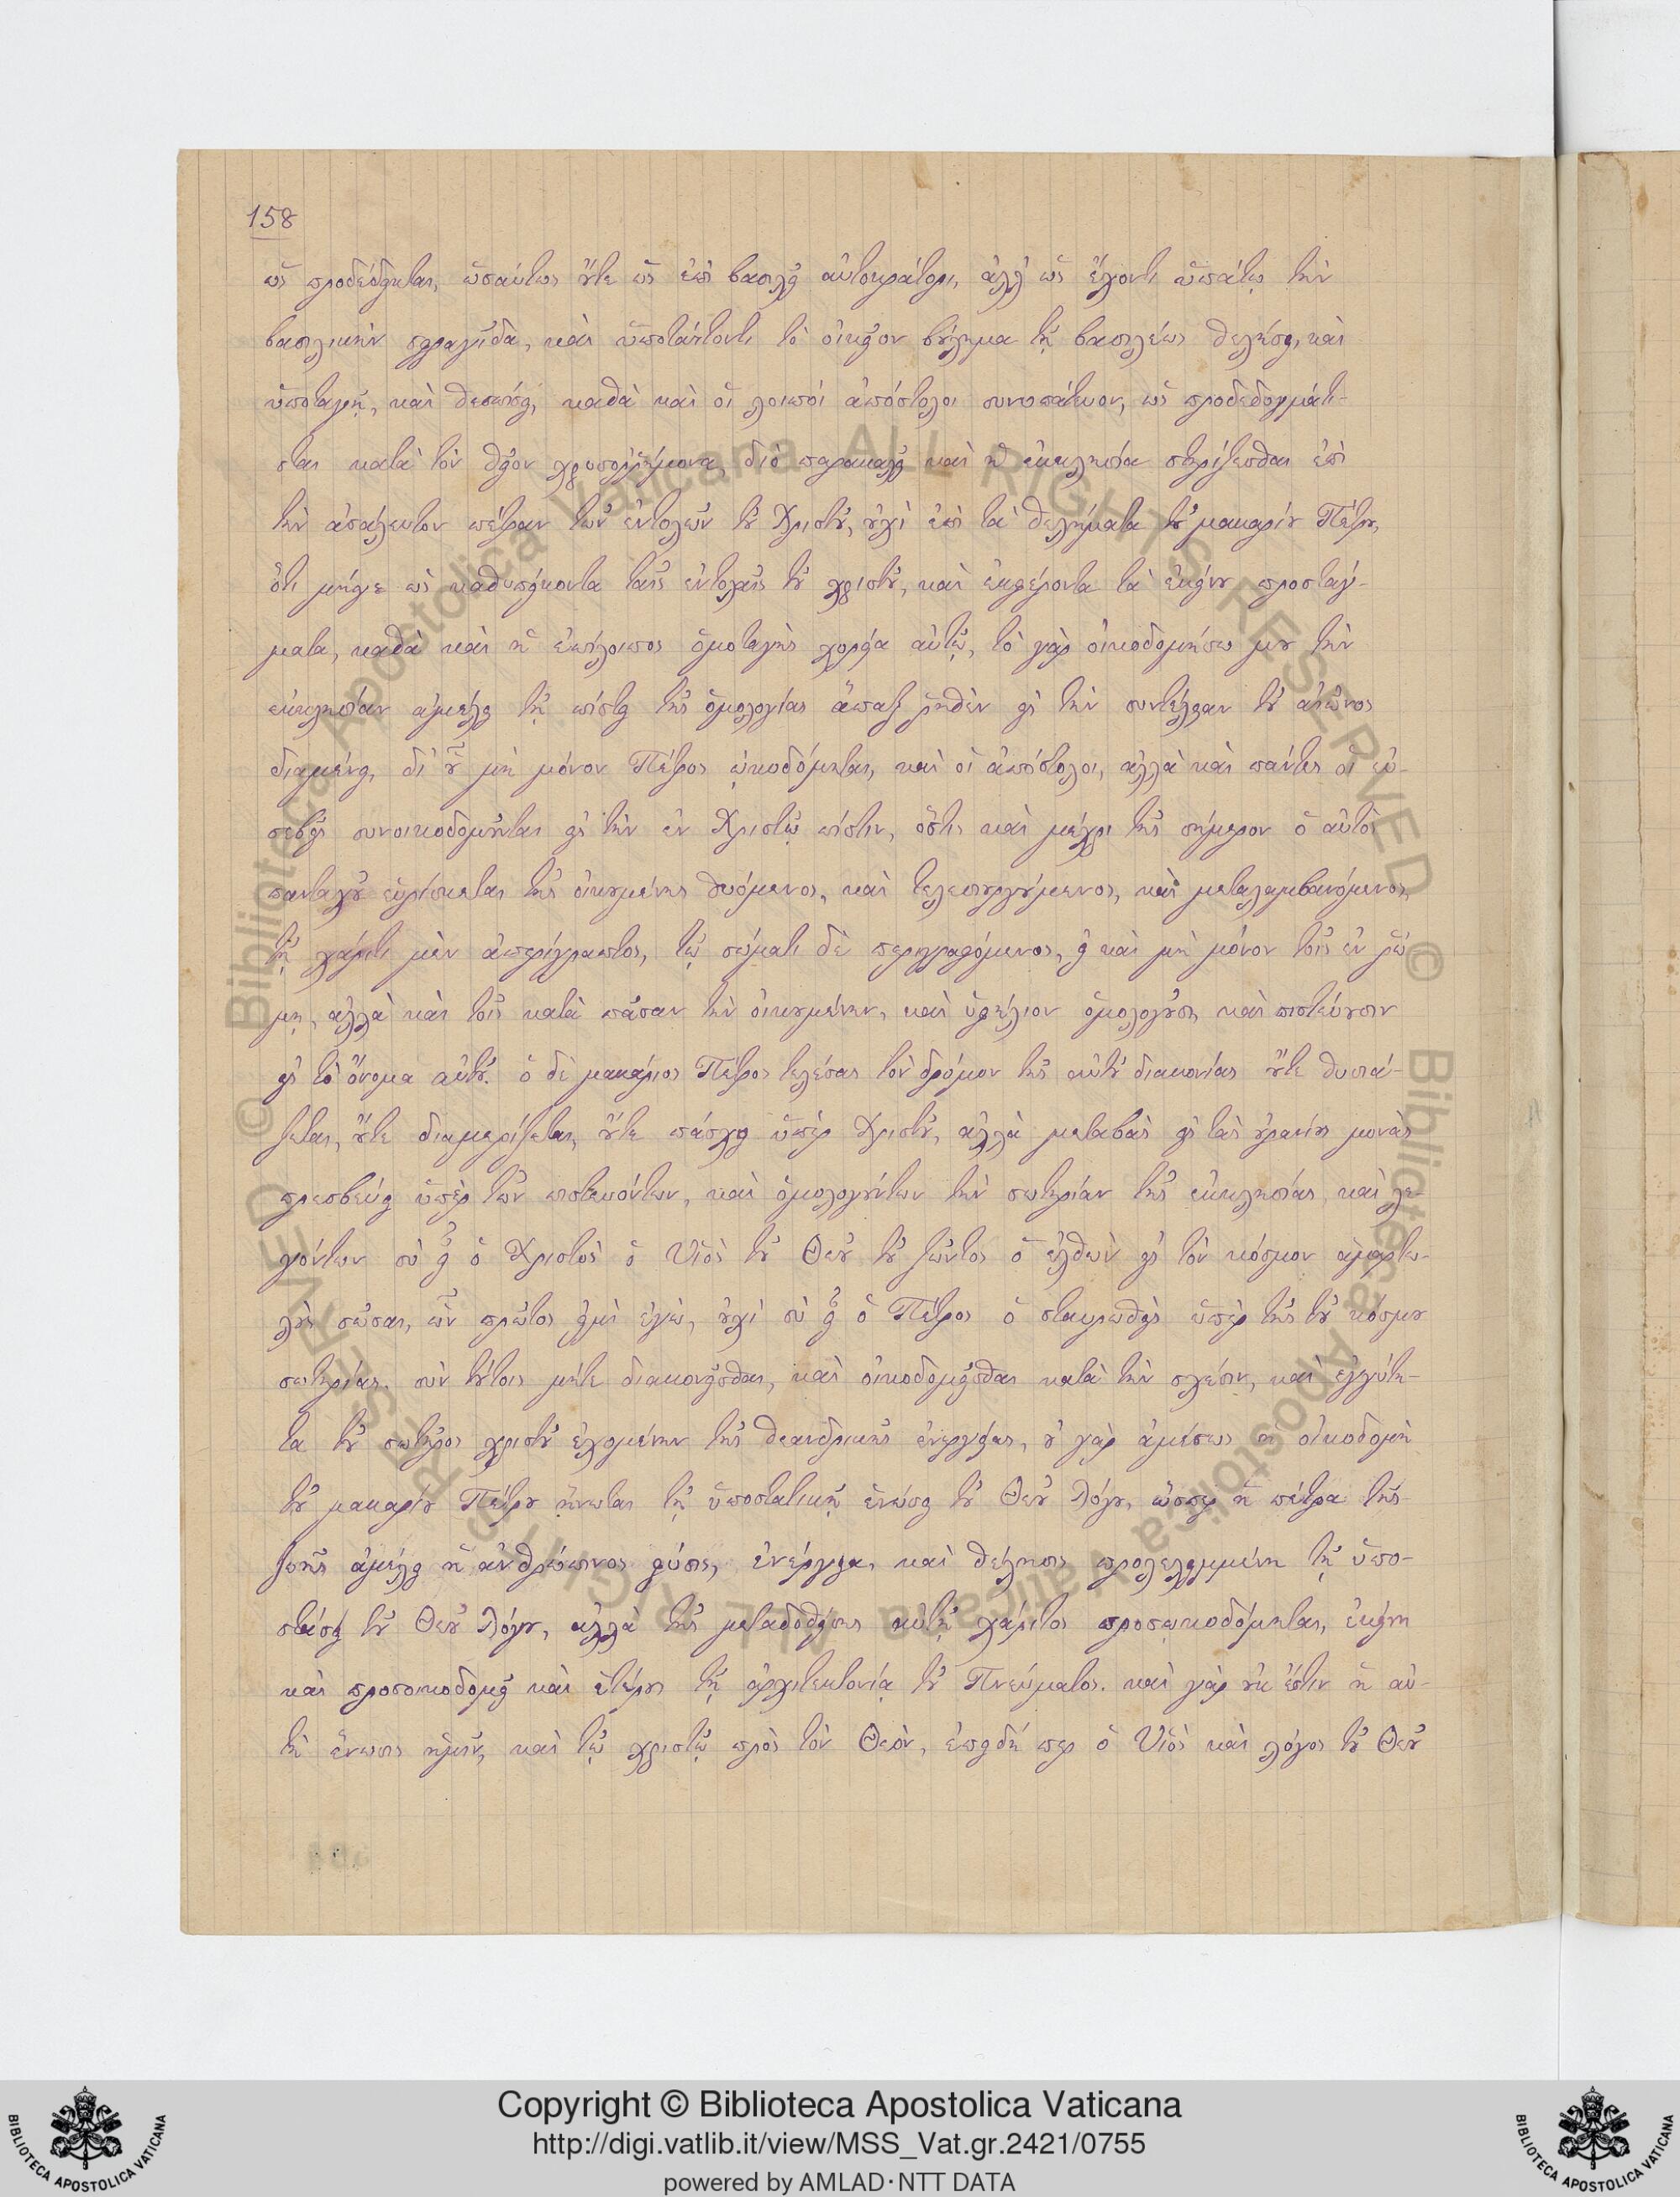 158
ὡς προδέδεικται, ὡσαύτως οὔτε ὡς ἐπὶ βασιλεῖ αὐτοκράτορι, ἀλλ' ὡς ἔχοντι ὑπάτῳ τὴν
βασιλικὴν σφραγῖδα, καὶ ὑποτάττοντι τὸ οἰκεῖον βούλημα τῇ βασιλέως θελήσει, καὶ
ὑποταγῇ, καὶ θεσπίσει, καθὰ καὶ οἱ λοιποὶ ἀπόστολοι συνυπάτευον, ὡς προδεδογμάτι-
σται κατὰ τὸν θεῖον χρυσορρήμονα, διὸ παρακαλεῖ καὶ ἡ ἐκκλησία στηρίζεσθαι ἐπὶ
τὴν ἀσάλευτον πέτραν τῶν ἐντολῶν τοῦ Χριστοῦ, οὐχὶ ἐπὶ τὰ θελήματα τοῦ μακαρίου Πέτρου,
ὅτι μήγε ὡς καθυπείκοντα ταῖς ἐντολαῖς τοῦ χριστοῦ, καὶ ἐκφέροντα τὰ ἐκείνου προστάγ-
ματα, καθὰ καὶ ἡ ἐπίλοιπος ὁμοταγὴς χορεία αὐτῷ, τὸ γὰρ οἰκοδομήσω μου τὴν
ἐκκλησίαν ἀμέλει τῇ πίστει τῆς ὁμολογίας ἅπαξ ῥηθὲν εἰς τὴν συντέλειαν τοῦ αἰῶνος
διαμένει, δι' οὗ μὴ μόνον Πέτρος ᾠκοδόμηται, καὶ οἱ ἀπόστολοι, ἀλλὰ καὶ πάντες οἱ εὐ-
σεβεῖς συνοικοδομοῦνται εἰς τὴν ἐν Χριστῷ πίστιν, ὅστις καὶ μέχρι τῆς σήμερον ὁ αὐτὸς
πανταχοῦ εὑρίσκεται τῆς οἰκουμένης θυόμενος, καὶ τελεσιουργούμενος, καὶ μεταλαμβανόμενος,
τῇ χάριτι μὲν ἀπερίγραπτος, τῷ σώματι δὲ περιγραφόμενος, εἰ καὶ μὴ μόνον τοῖς ἐν ῥώ
μῃ, ἀλλὰ καὶ τοῖς κατὰ πᾶσαν τὴν οἰκουμένην, καὶ ὑφήλιον ὁμολογοῦσι, καὶ πιστεύουσιν
εἰς τὸ ὄνομα αὐτοῦ. ὁ δὲ μακάριος Πέτρος τελέσας τὸν δρόμον τῆς αὐτοῦ διακονίας οὔτε θυσιά-
ζεται, οὔτε διαμερίζεται, οὔτε πάσχει ὑπὲρ Χριστοῦ, ἀλλὰ μεταβὰς εἰς τὰς οὐρανίους μονὰς
πρεσβεύει ὑπὲρ τῶν πιστευόντων, καὶ ὁμολογούντων τὴν σωτηρίαν τῆς ἐκκλησίας, καὶ λε-
γόντων σὺ εἶ ὁ Χριστὸς ὁ Υἱὸς τοῦ Θεοῦ τοῦ ζῶντος ὁ ἐλθὼν εἰς τὸν κόσμον ἁμαρτω-
λοὺς σῶσαι, ὧν πρῶτος εἰμὶ ἐγὼ, οὐχὶ σὺ εἶ ὁ Πέτρος ὁ σταυρωθεὶς ὑπὲρ τῆς τοῦ κόσμου
σωτηρίας. σὺν τούτοις μήτε διακονεῖσθαι, καὶ οἰκοδομεῖσθαι κατὰ τὴν σχέσιν, καὶ ἐγγύτη-
τα τοῦ σωτῆρος χριστοῦ ἐχομένην τῆς θεανδρικῆς ἐνεργείας, οὐ γὰρ ἀμέσως ἡ οἰκοδομὴ
τοῦ μακαρίου Πέτρου ἥνωται τῇ ὑποστατικῇ ἑνώσει τοῦ Θεοῦ Λόγου, ὥσπερ ἡ πέτρα τῆς
ζωῆς ἀμέλει ἡ ἀνθρώπινος φύσις, ἐνέργεια, καὶ θέλησις προλελειμμένη τῇ ὑπο-
στάσει τοῦ Θεοῦ Λόγου, ἀλλὰ τῆς μεταδοθείσης αὐτῇ χάριτος προσῳκοδόμηται, ἐκείνη
καὶ προσοικοδομεῖ καὶ ἑτέρους τῇ ἀρχιτεκτονίᾳ τοῦ Πνεύματος. καὶ γὰρ οὐκ ἔστιν ἡ αὐ-
τὴ ἕνωσις ἡμῖν, καὶ τῷ χριστῷ πρὸς τὸν Θεὸν, ἐπειδή περ ὁ Υἱὸς καὶ λόγος τοῦ Θεοῦ
Copyright © Biblioteca Apostolica Vaticana
http://digi.vatlib.it/view/MSS_Vat.gr.2421/0755
powered by AMLAD·NTT DATA
BIBLIOTECA APOSTOLICA VATICANA
BIBLIOTECA APOSTOLICA VATICANA
© Biblioteca Apostolica Vaticana ALL RIGHTS RESERVED
© Biblioteca Apostolica Vaticana ALL RIGHTS RESERVED